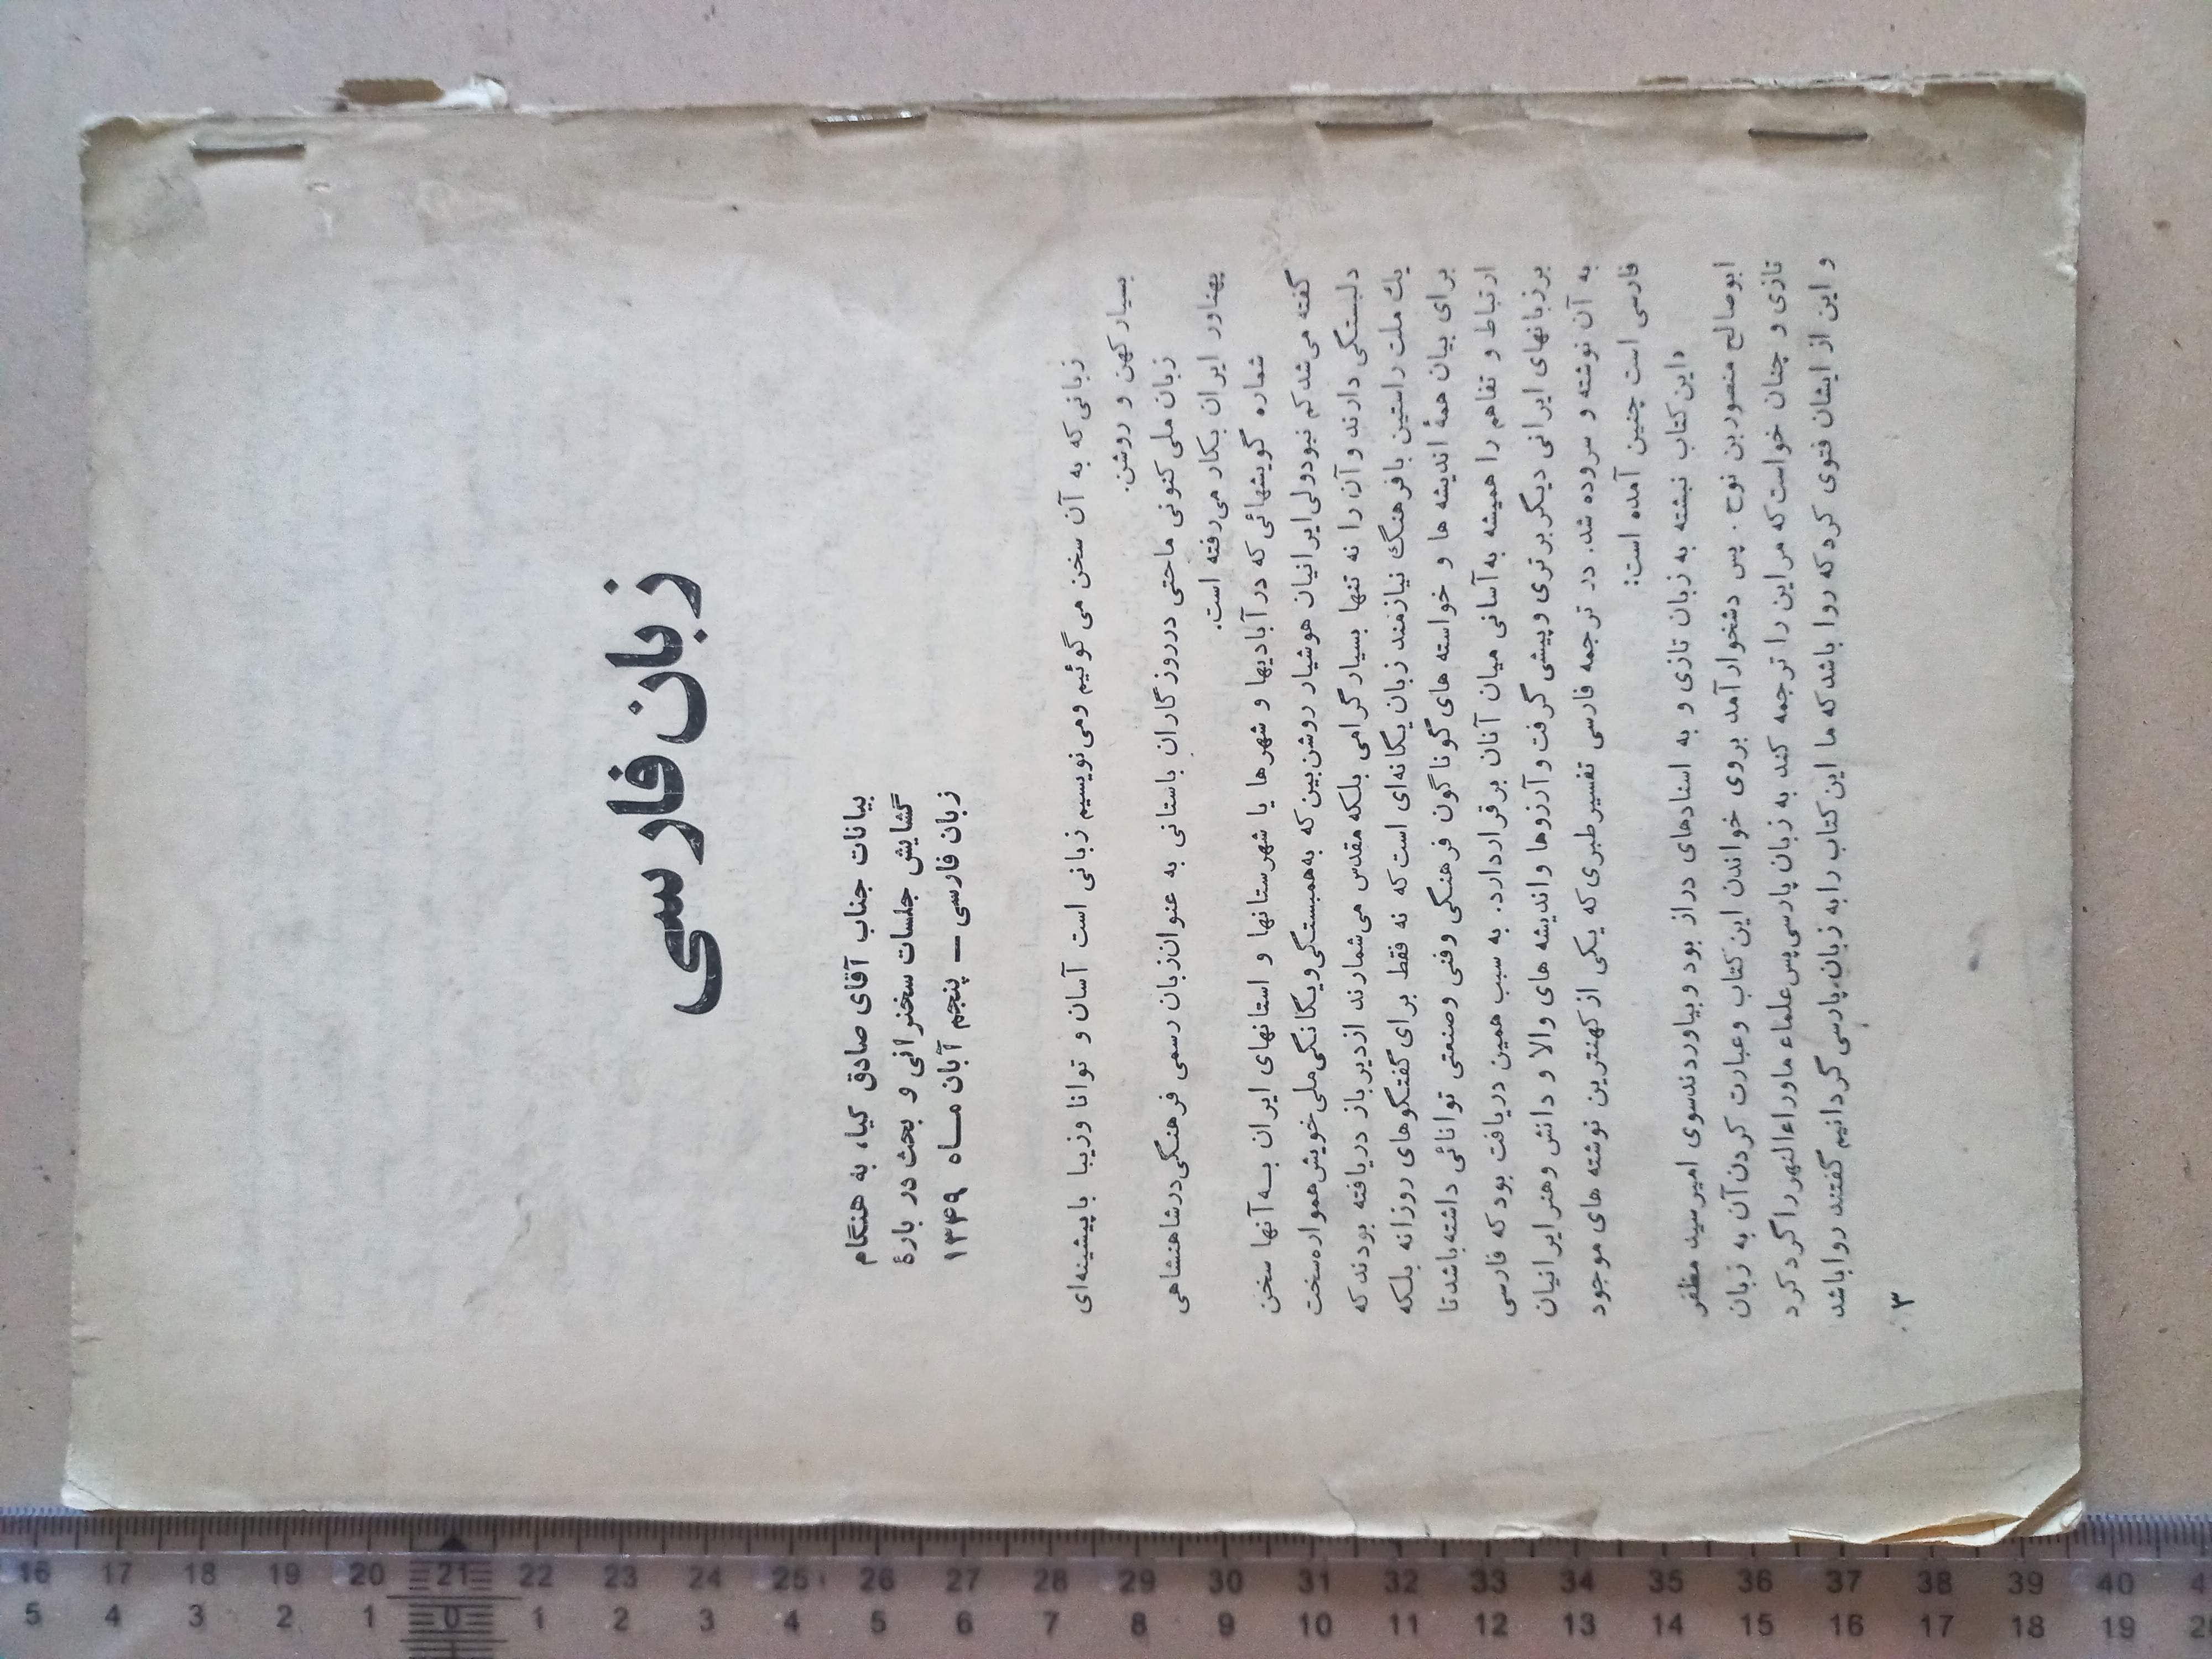 زبان فارسی
بیانات جناب آقای صادق کیا، به هنگام
گشایش جلسات سخنرانی و بحث در بارهٔ
زبان فارسی — پنجم آبان مـاه ۱۳۴۹
زبانی که به آن سخن می گوئیم ومی نویسیم زبانی است آسان و توانا وزیبا باپیشینه‌ای
بسیار کهن و روشن.
زبان ملی کنونی ماحتی درروزگاران باستانی به عنوان‌زبان رسمی فرهنگی‌درشاهنشاهی
پهناور ایران بکار می‌رفته است.
شماره گویشهائی که در آبادیها و شهرها یا شهرستانها و استانهای ایران بـه آنها سخن
گفته می‌شد کم نبودولی‌ایرانیان هوشیار روشن‌بین که به‌همبستگی‌ویگانگی‌ملی‌خویش‌همواره‌سخت
دلبستگی دارند وآن‌ را نه تنها بسیار گرامی بلکه مقدس می‌شمارند ازدیر باز دریافته بودند که
یك ملت راستین بافرهنگ نیازمند زبان یگانه‌ای است که نه فقط برای گفتگوهای روزانه بلکه
برای بیان همهٔ اندیشه ها و خواسته های گوناگون فرهنگی وفنی وصنعتی توانائی داشته‌باشدتا
ارتباط و تفاهم را همیشه به آسانی میان آنان برقراردارد. به سبب همین دریافت بود که فارسی
برزبانهای ایرانی دیگر برتری وپیشی گرفت وآرزوها واندیشه های والا و دانش وهنر ایرانیان
به آن نوشته و سروده شد. در ترجمه فارسی تفسیر طبری که یکی از کهنترین نوشته های موجود
فارسی است چنین آمده است:
«این کتاب نبشته به زبان تازی و به اسنادهای دراز بود وبیاوردندسوی امیر سید مظفر
ابوصالح منصور بن نوح. پس دشخوار آمد بروی خواندن این کتاب وعبارت کردن‌آن به زبان
تازی و چنان خواست که مراین را ترجمه کند به زبان پارسی‌پس‌علماء ماوراءالنهر راگرد کرد
و این از ایشان فتوی کرد که روا باشد که ما این کتاب را به زبان‌پارسی گردانیم گفتند روا باشد
۳
16 17 18 19 20 21 22 23 24 25 26 27 28 29 30 31 32 33 34 35 36 37 38 39 40
5 4 3 2 1 0 1 2 3 4 5 6 7 8 9 10 11 12 13 14 15 16 17 18 19